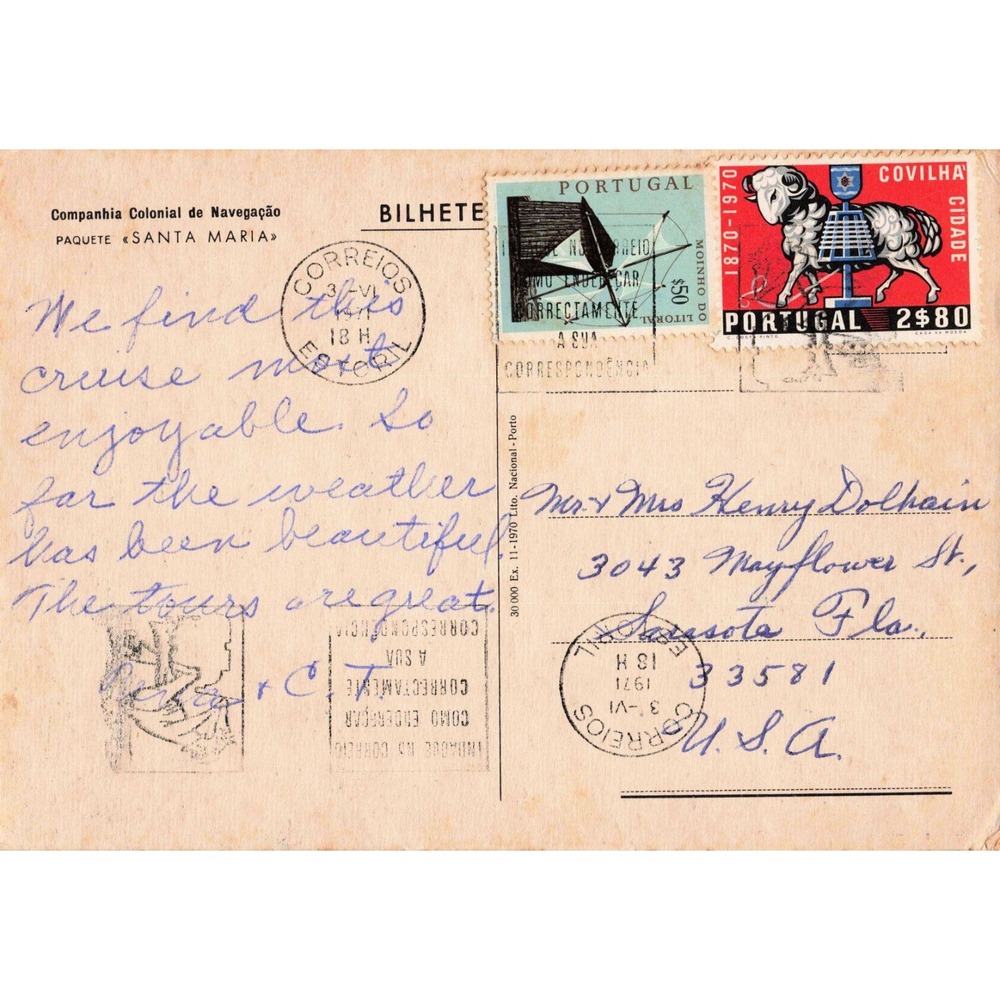 Companhia Colonial de Navegação
PAQUETE «SANTA MARIA»
BILHETE
CORREIOS
3-VI
18 H
ESTORIL
We find this
cruise most
enjoyable. So
far the weather
has been beautiful.
The tours are great.
& C. T.
PORTUGAL
MOINHO DO LITORAL
$50
1870-1970
COVILHÃ
CIDADE
PORTUGAL 2$80
CASA DA MOEDA
NO CORREIO
COMO ENDEREÇAR
CORRECTAMENTE
A SUA
CORRESPONDÊNCIA
30 000 Ex. 11-1970 Lito. Nacional - Porto
Mr & Mrs Henry Dolhain
3043 Mayflower St.,
Sarasota Fla.,
33581
U. S. A.
CORREIOS
3-VI
1971
18 H
ESTORIL
INDAGUE NO CORREIO
COMO ENDEREÇAR
CORRECTAMENTE
A SUA
CORRESPONDÊNCIA